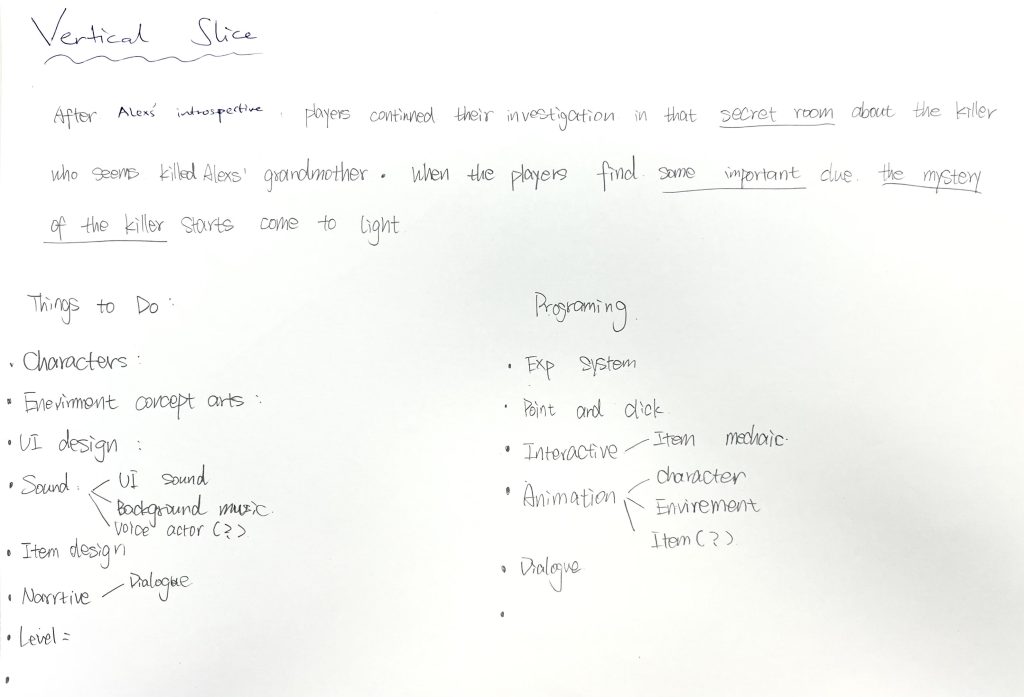 Vertical Slice
After Alexs' introspective, players continued their investigation in that secret room about the killer
who seems killed Alexs' grandmother. When the players find some important clue. the mystery
of the killer starts come to light
Things to Do :
• Characters :
• Enevirment concept arts :
• UI design :
• Sound :
UI sound
Background music.
Voice actor (?)
• Item design
• Narrtive
Dialogue
• Level =
Programing.
• Exp system
• Point and click
• Interactive
Item mechaic.
• Animation
character
Envirement
Item (?)
• Dialogue